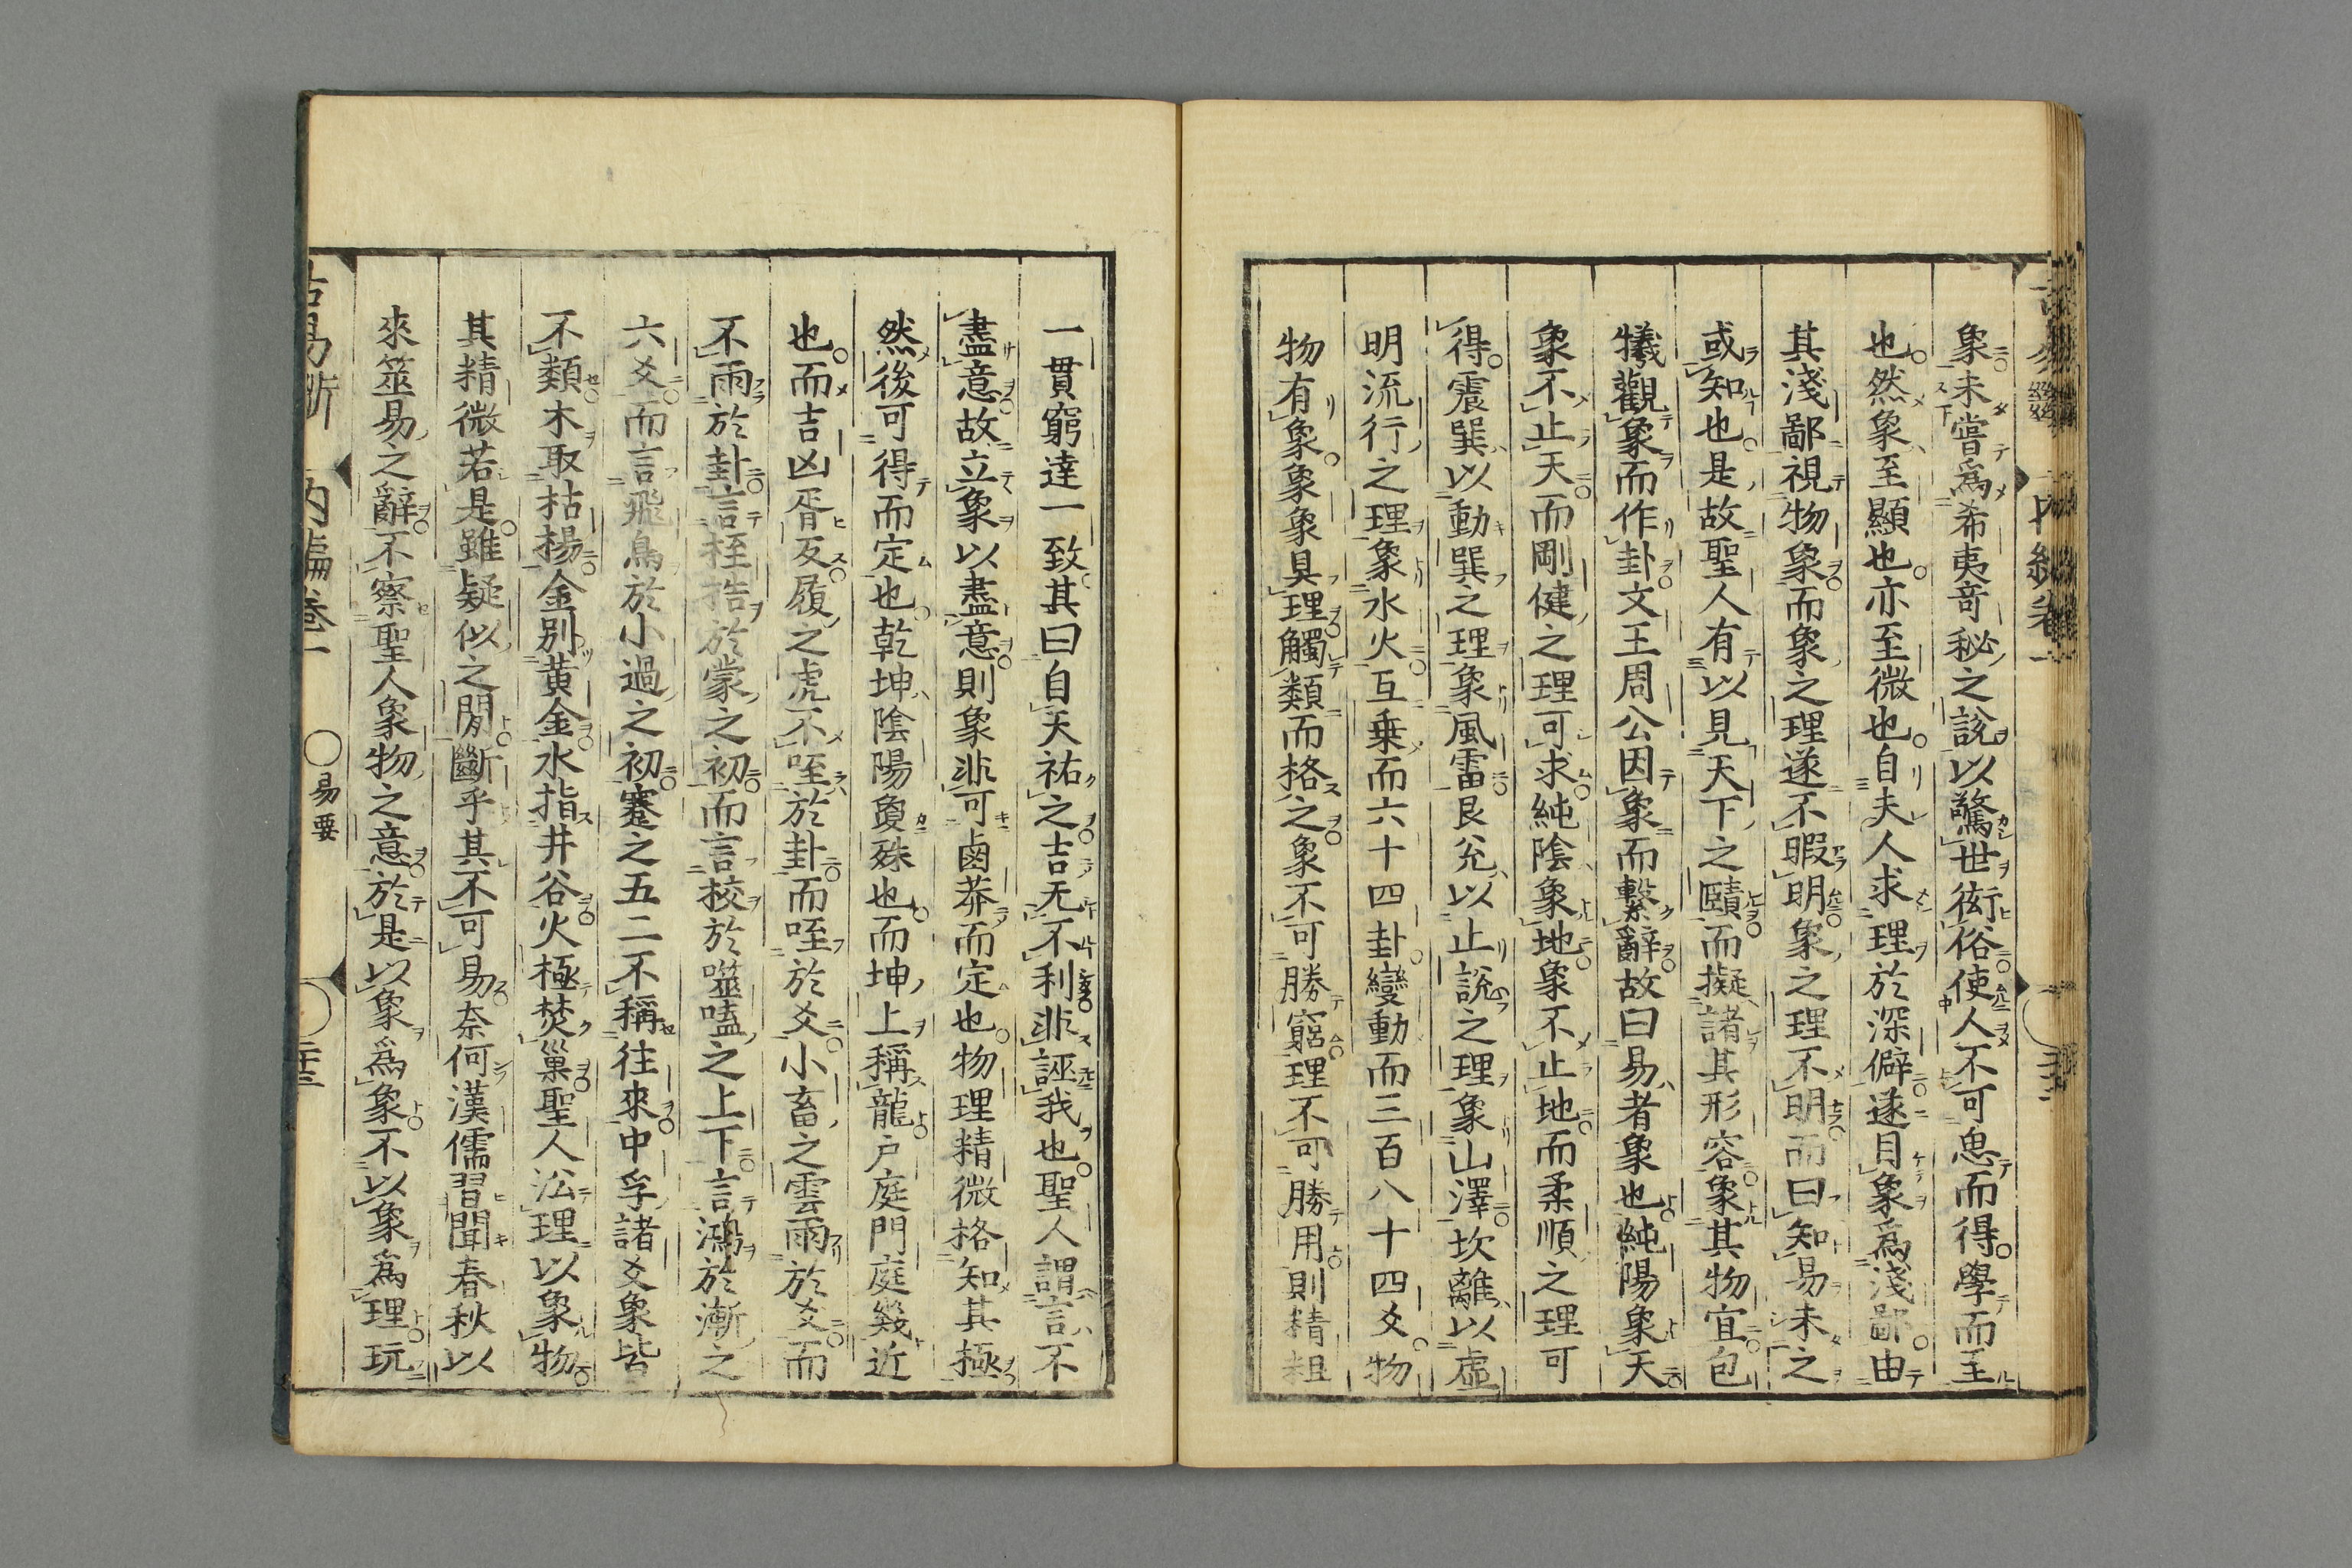 象未嘗爲希夷竒秘之說以驚世衒俗使人不可思而得學而至
也然象至顯也亦至微也自夫人求理於深僻遂目象爲淺鄙由
其淺鄙視物象而象之理遂不暇明象之理不明而曰知易未之
或知也是故聖人有以見天下之賾而擬諸其形容象其物宜包
犧觀象而作卦文王周公因象而繫辭故曰易者象也純陽象天
象不止天而剛健之理可求純陰象地象不止地而柔順之理可
得震巽以動巽之理象風雷艮兌以止說之理象山澤坎離以虛
明流行之理象水火互乗而六十四卦變動而三百八十四爻物
物有象象象具理觸類而格之象不可勝窮理不可勝用則精粗
一貫窮達一致其曰自天祐之吉无不利非誣我也聖人謂言不
盡意故立象以盡意則象非可鹵莽而定也物理精微格知其極
然後可得而定也乾坤陰陽夐殊也而坤上稱龍戶庭門庭幾近
也而吉凶胥反履之虎不咥於卦而咥於爻小畜之雲雨於爻而
不雨於卦言桎梏於蒙之初而言校於噬嗑之上下言鴻於漸之
六爻而言飛鳥於小過之初蹇之五二不稱往來中孚諸爻象皆
不類木取枯楊金别黄金水指井谷火極焚巢聖人㳂理以象物
其精微若是雖疑似之閒斷乎其不可易奈何漢儒習聞春秋以
來筮易之辭不察聖人象物之意於是以象爲象不以象爲理玩
古易斷
內編卷一
易要